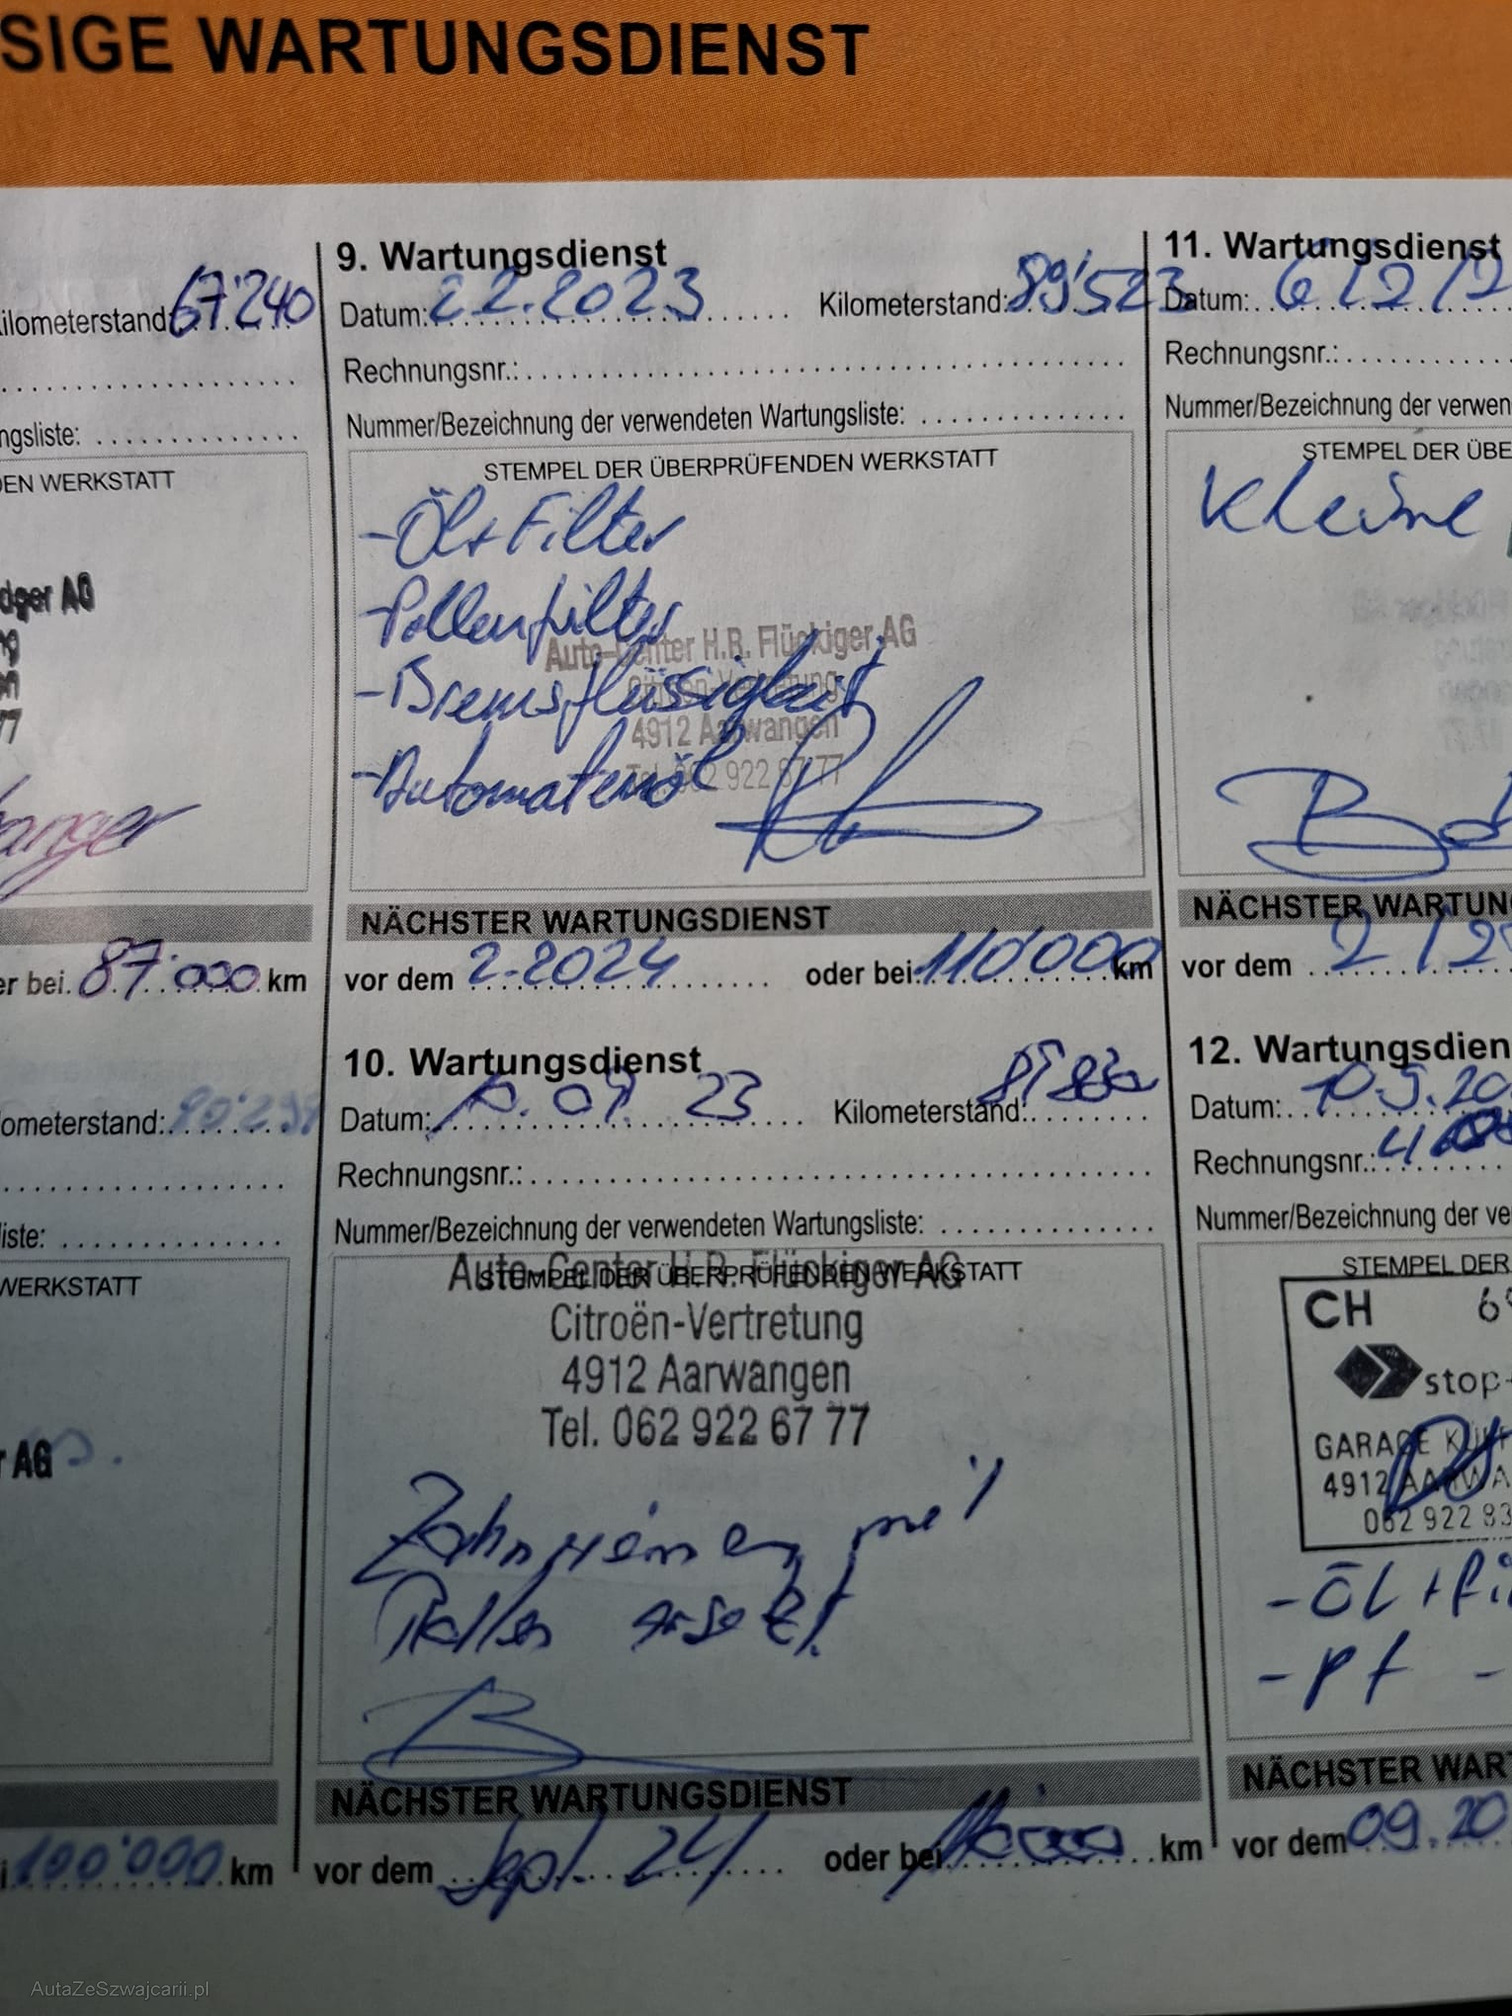 SIGE WARTUNGSDIENST
ilometerstand: 67'240
ngsliste:
EN WERKSTATT
dger AG
77
er bei 87'000 km
lometerstand:
iste:
WERKSTATT
r AG
100'000 km
9. Wartungsdienst
Datum: 22.2023 Kilometerstand: 89'523
Rechnungsnr.:
Nummer/Bezeichnung der verwendeten Wartungsliste:
STEMPEL DER ÜBERPRÜFENDEN WERKSTATT
- Öl + Filter
- Pollenfilter
Auto-Center H.R. Flückiger AG
- Bremsflüssigkeit
Citroën-Vertretung
4912 Aarwangen
- Automatenöl
Tel. 062 922 67 77
NÄCHSTER WARTUNGSDIENST
vor dem 2-2024 oder bei 110'000 km
10. Wartungsdienst
Datum: 23 Kilometerstand:
Rechnungsnr.:
Nummer/Bezeichnung der verwendeten Wartungsliste:
STEMPEL DER ÜBERPRÜFENDEN WERKSTATT
Auto-Center H.R. Flückiger AG
Citroën-Vertretung
4912 Aarwangen
Tel. 062 922 67 77
Zahnriemen mit
Rollen ersetzt
NÄCHSTER WARTUNGSDIENST
vor dem Sept. 24 oder bei km
11. Wartungsdienst
Datum: 6/2/2
Rechnungsnr.:
Nummer/Bezeichnung der verwen
STEMPEL DER ÜBE
Kleine
NÄCHSTER WARTUN
vor dem 2/2
12. Wartungsdien
Datum: 10.5.20
Rechnungsnr.:
Nummer/Bezeichnung der ve
STEMPEL DER
CH 6
stop
GARAGE
4912 AARWA
062 922 83
- ÖL + Fi
- Pf -
NÄCHSTER WAR
vor dem 09.20
AutaZeSzwajcarii.pl